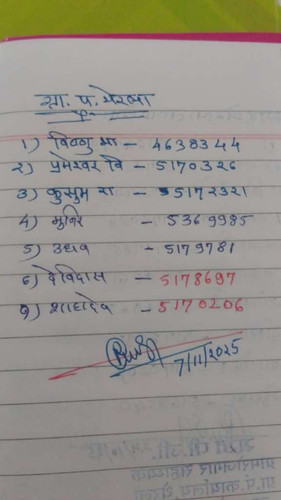 ग्रा. प. येरला
१) विष्णु मा – 4638344
२) प्रमेश्वर वि – 5170326
३) कुसुम रा – 5172321
४) मुनिर – 5369985
५) उध्दव – 5179781
६) देविदास – 5178697
७) शाहादेव – 5170206
7/11/2025